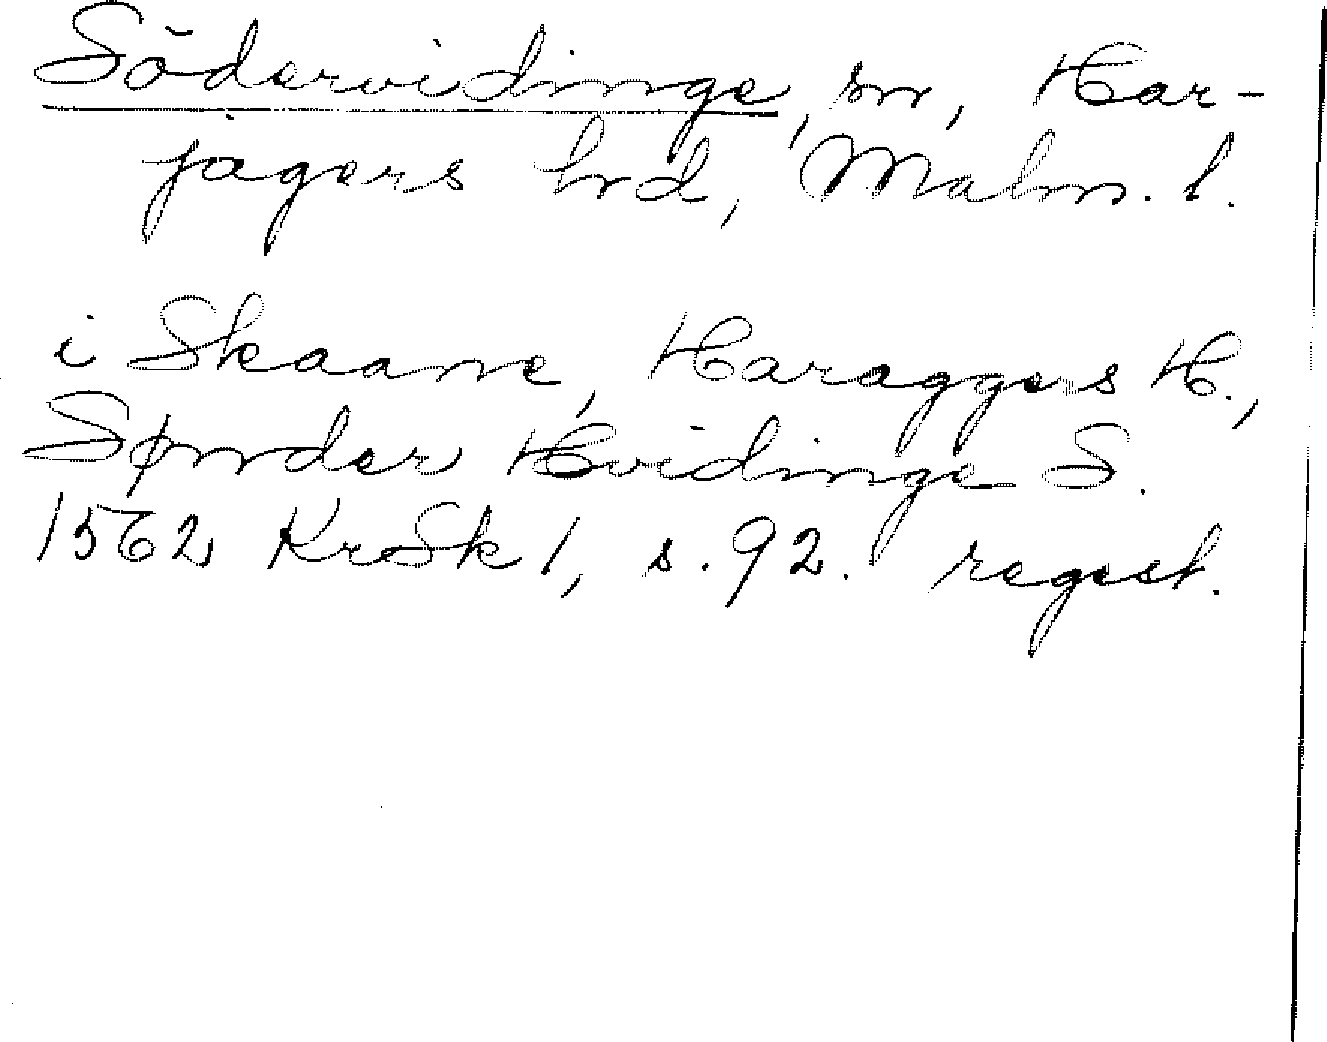 Södervidinge, sn, Har-
jagers hrd, Malm. l.
i Skaane, Haraggers H.,
Sønder Hvidinge S.
1562 KrSk 1, s. 92. regest.